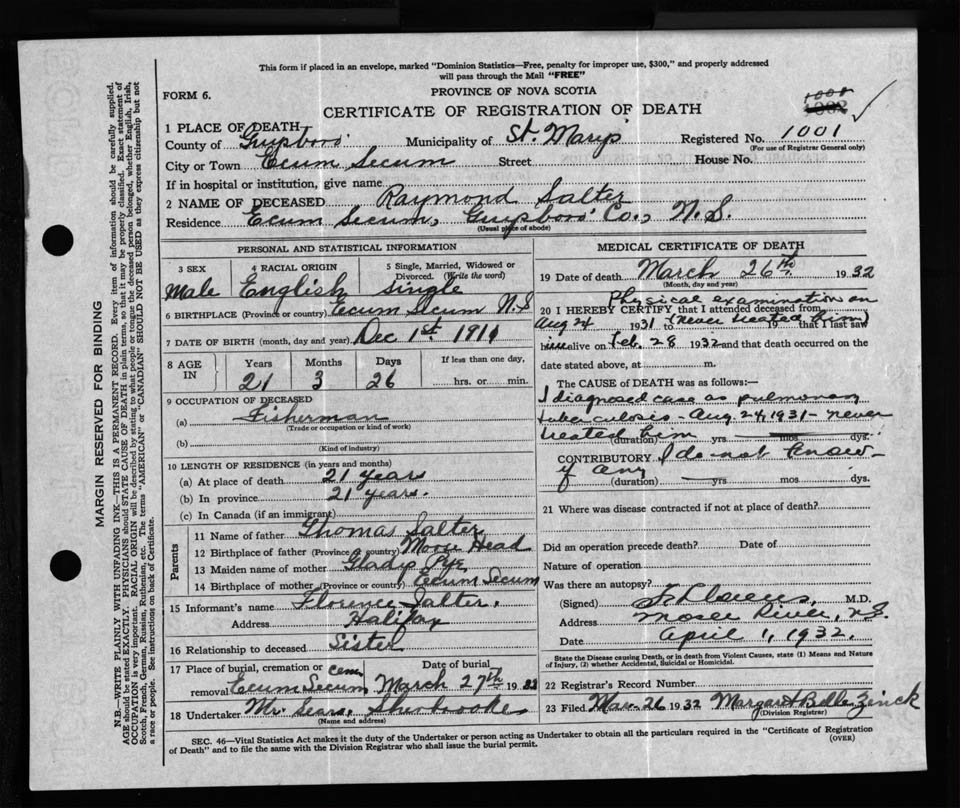 This form if placed in an envelope, marked "Dominion Statistics—Free, penalty for improper use, $300," and properly addressed
will pass through the Mail "FREE"
FORM 6.
PROVINCE OF NOVA SCOTIA
CERTIFICATE OF REGISTRATION OF DEATH
1001
1 PLACE OF DEATH
County of Guysboro Municipality of St. Marys Registered No. 1001
(For use of Registrar General only)
City or Town Ecum Secum Street House No.
If in hospital or institution, give name
2 NAME OF DECEASED Raymond Salter
Residence Ecum Secum, Guysboro Co., N.S.
(Usual place of abode)
PERSONAL AND STATISTICAL INFORMATION
3 SEX 4 RACIAL ORIGIN 5 Single, Married, Widowed or Divorced. (Write the word)
Male English Single
6 BIRTHPLACE (Province or country) Ecum Secum N.S
7 DATE OF BIRTH (month, day and year) Dec 1st
8 AGE IN Years Months Days If less than one day,
21 3 26 hrs. or min.
9 OCCUPATION OF DECEASED
(a) Fisherman
(Trade or occupation or kind of work)
(b)
(Kind of industry)
10 LENGTH OF RESIDENCE (in years and months)
(a) At place of death 21 years
(b) In province 21 years.
(c) In Canada (if an immigrant)
Parents
11 Name of father Thomas Salter
12 Birthplace of father (Province or country) Moose Head
13 Maiden name of mother Gladys Pye
14 Birthplace of mother (Province or country) Ecum Secum
15 Informant's name Florence Salter.
Address Halifax
16 Relationship to deceased Sister
17 Place of burial, cremation or cem Date of burial
removal Ecum Secum March 27th 1932
18 Undertaker Mr. Sears, Sherbrooke
(Name and address)
MEDICAL CERTIFICATE OF DEATH
19 Date of death March 26th 1932
(Month, day and year)
Physical examination on
20 I HEREBY CERTIFY that I attended deceased from
Aug 24 1931 (never treated him) 19 that I last saw
him alive on Feb. 28 1932 and that death occurred on the
date stated above, at m.
The CAUSE OF DEATH was as follows:
I diagnosed case as pulmonary
tuberculosis - Aug. 24, 1931 - never
treated him
(duration) yrs mos dys.
CONTRIBUTORY I do not know -
if any
(duration) yrs mos dys.
21 Where was disease contracted if not at place of death?
Did an operation precede death? Date of
Nature of operation
Was there an autopsy?
(Signed) M.D.
Address Moser River, N.S.
Date April 1, 1932.
State the Disease causing Death, or in death from Violent Causes, state (1) Means and Nature
of Injury, (2) whether Accidental, Suicidal or Homicidal.
22 Registrar's Record Number
23 Filed Mar. 26 1932 Margaret Belle Zinck
(Division Registrar)
SEC. 46—Vital Statistics Act makes it the duty of the Undertaker or person acting as Undertaker to obtain all the particulars required in the "Certificate of Registration
of Death" and to file the same with the Division Registrar who shall issue the burial permit.
(OVER)
MARGIN RESERVED FOR BINDING
N.B.—WRITE PLAINLY WITH UNFADING INK—THIS IS A PERMANENT RECORD. Every item of information should be carefully supplied.
AGE should be stated EXACTLY. PHYSICIANS should STATE CAUSE OF DEATH in plain terms, so that it may be properly classified. Exact statement of
OCCUPATION is very important. RACIAL ORIGIN will be described by stating to what people or tongue the deceased person belonged, whether English, Irish,
Scotch, French, German, Russian, Ruthenian, etc. The terms "AMERICAN" or "CANADIAN" SHOULD NOT BE USED as they express citizenship but not
a race or people. See instructions on back of Certificate.